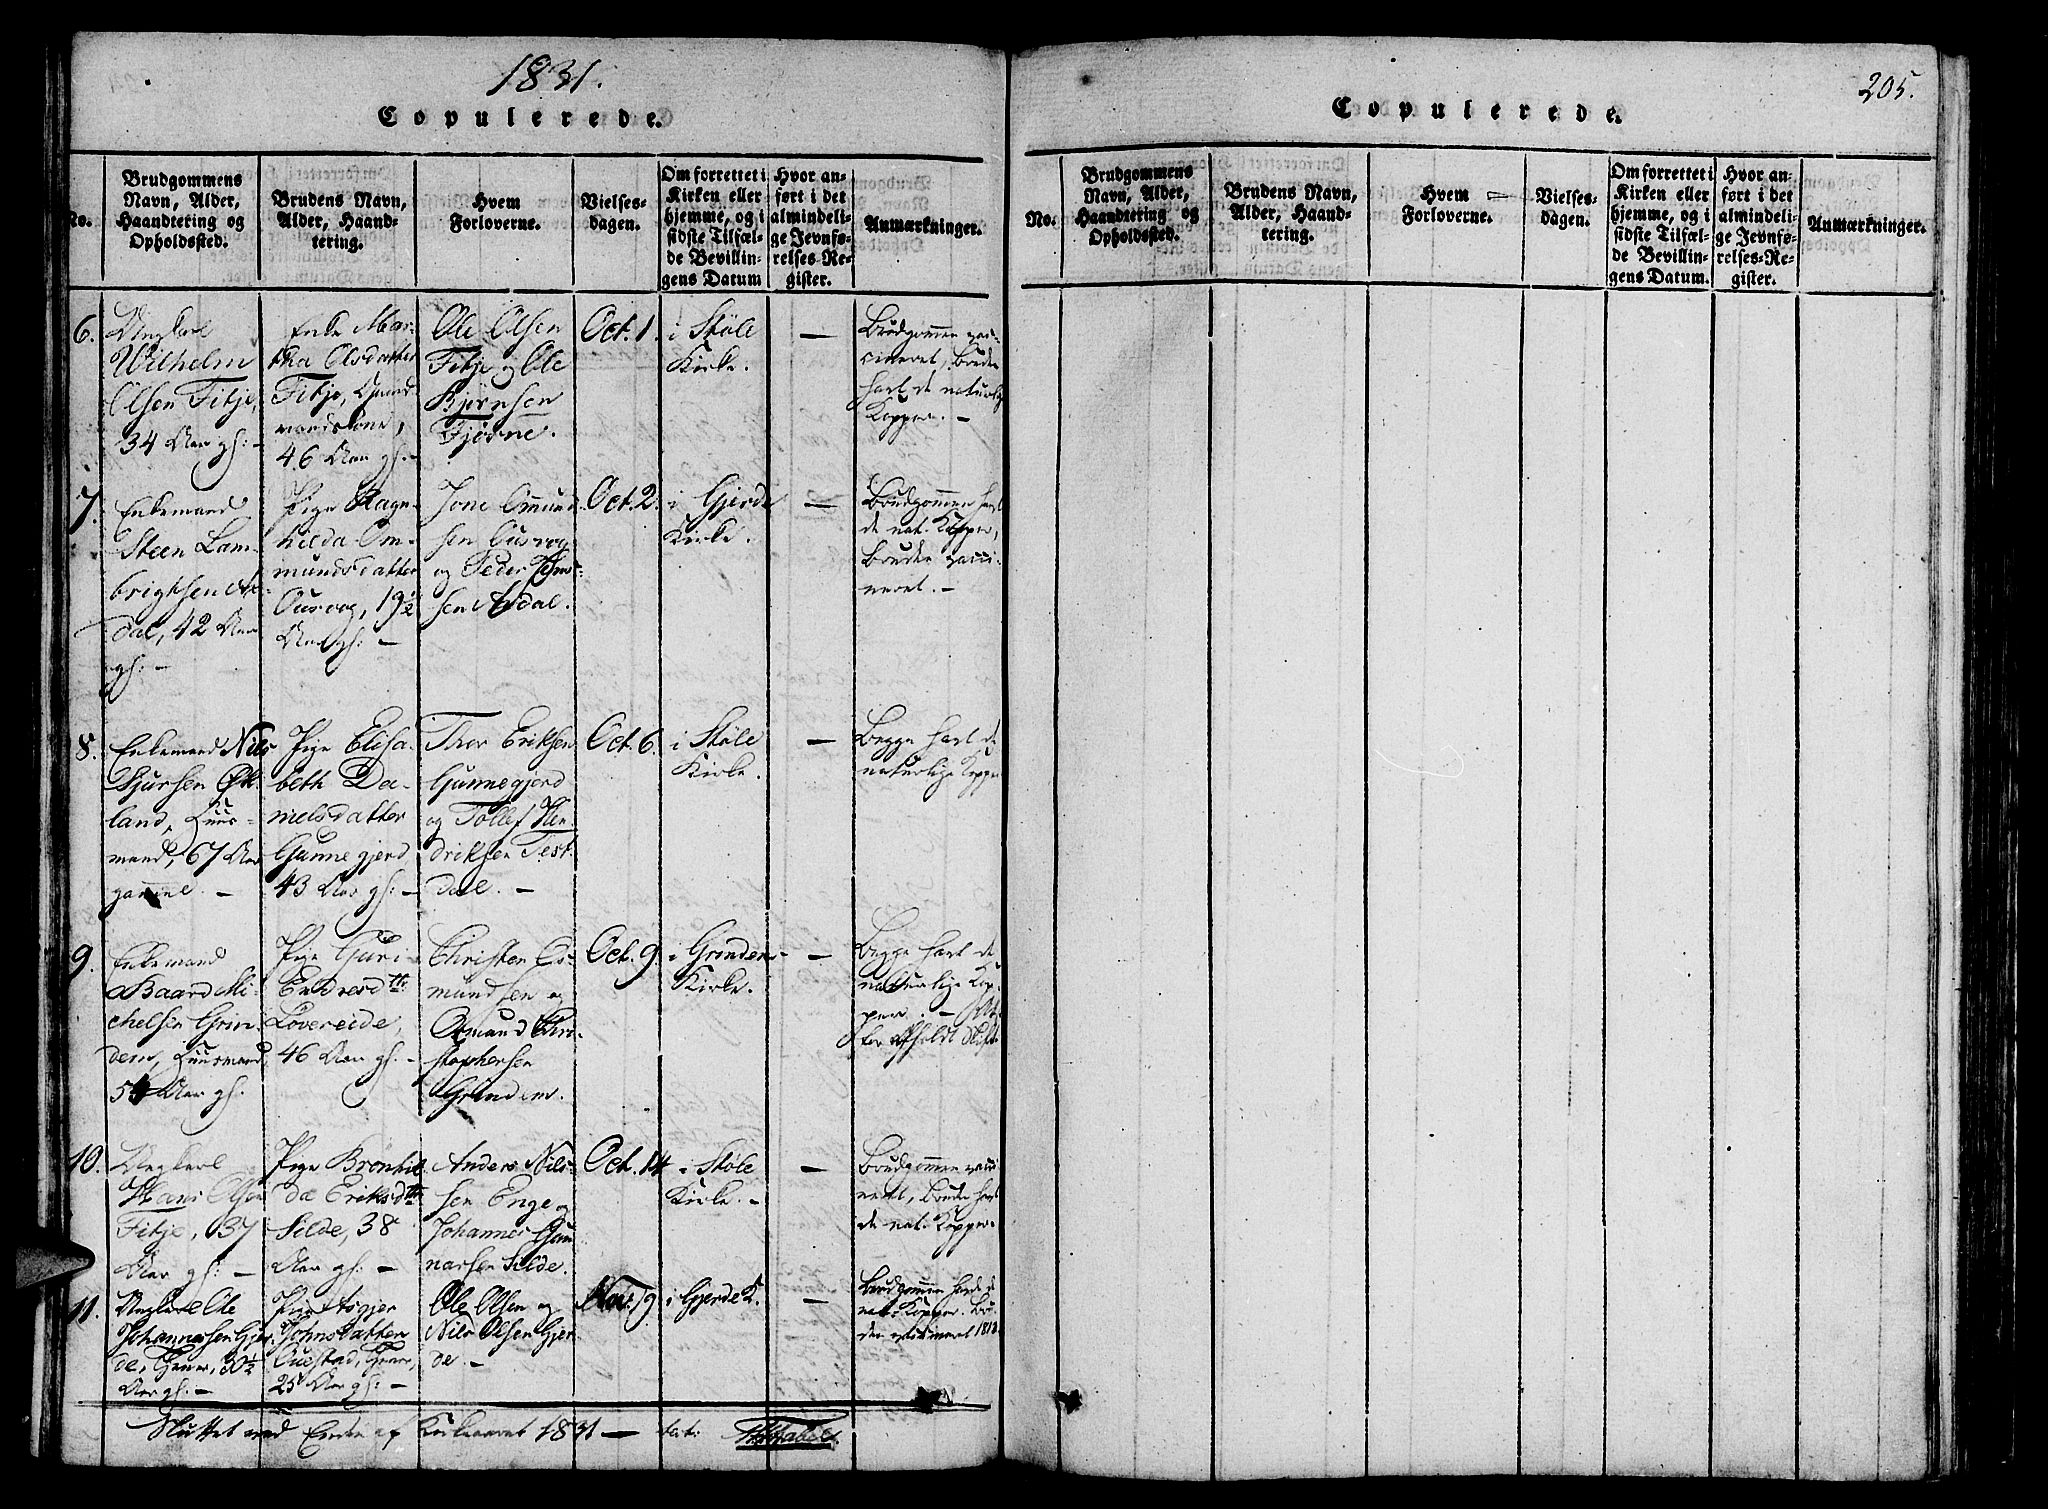 1831.
Copulerede.
No.
Brudgommens
Navn, Alder,
Haandtering og
Opholdssted.
Brudens Navn,
Alder, Haand-
tering.
Hvem
Forloverne.
Vielses-
dagen.
Om forrettet i
Kirken eller
hjemme, og i
sidste Tilfæl-
de Bevillin-
gens Datum
Hvor an-
ført i det
almindeli-
ge Jevnfø-
relses-Re-
gister.
Anmærkninger.
6.
Ungkarl
Wilhelm
Olsen Fitje,
34 Aar gl: -
Enke Mar-
tha Olsdatter
Fitje, Gaard-
mandskone,
46 Aar gl: -
Ole Olsen
Fitje og Ole
Bjørnsen
Fjørne.
Oct. 1.
i Støle
Kirke.
—
Brudgommen vac-
cineret, Bruden
havt de naturlige
Kopper. -
7.
Enkemand
Steen Lam-
brigtsen
dal, 42 Aar
gl: -
Pige Ragn-
hilda Om-
mundsdatter
Ousvog, 19½
Aar gl: -
Jone Omund-
sen Ousvog
og Peder
sen Ardal.
Oct. 2.
i Gjerde
Kirke.
—
Brudgommen havt
de nat. Kopper,
Bruden vacci-
neret. -
8.
Enkemand Nils
Sjursen Øk-
land, Huus-
mand, 67 Aar
gammel. -
Pige Elisa-
beth Da-
nielsdatter
Gunnegjerd
43 Aar gl: -
Thor Eriksen
Gunnegjerd
og Tollef Hen-
driksen Test-
dal. -
Oct. 6.
i Støle
Kirke.
—
Begge havt de
naturlige Kopper
9.
Enkemand
Baard Mi-
chelsen Grin-
dem, Huusmand,
54 Aar gl.
Pige Guri
Endresdtt:
Løvereide,
46 Aar gl. -
Christen Os-
mundsen og
Osmund Chri-
stophersen
Grindem.
Oct. 9.
i Grindem-
Kirke.
—
Begge havt de
naturlige Kop-
per. -
afholdt Skifte
10.
Ungkarl
Hans Olsen
Fitje, 37
Aar gl: -
Pige Brønhil-
da Eriksdtt:
Silde, 38
Aar gl: -
Anders Nils-
sen Enge og
Johannes Gun-
narsen Silde.
Oct. 14
i Støle
Kirke. -
—
Brudgommen vacci-
neret, Bruden havt
de nat. Kopper.
11.
Ungkarl Ole
Johannessen Gjer-
de, 30½
Aar gl: -
Pige Asgjer
Johnsdatter
25 Aar gl: -
Ole Olsen og
Nils Olsen Gjer-
de. -
Nov. 9.
i Gjerde K.
—
Brudgommen havde de
nat. Kopper. Bru-
den vaccineret 1818.
Sluttet ved Enden af Kirkeaaret 1831 —
205.
Copulerede.
No.
Brudgommens
Navn, Alder,
Haandtering og
Opholdssted.
Brudens Navn,
Alder, Haand-
tering.
Hvem
Forloverne.
Vielses-
dagen.
Om forrettet i
Kirken eller
hjemme, og i
sidste Tilfæl-
de Bevillin-
gens Datum.
Hvor an-
ført i det
almindeli-
ge Jevnfø-
relses-Re-
gister.
Anmærkninger.